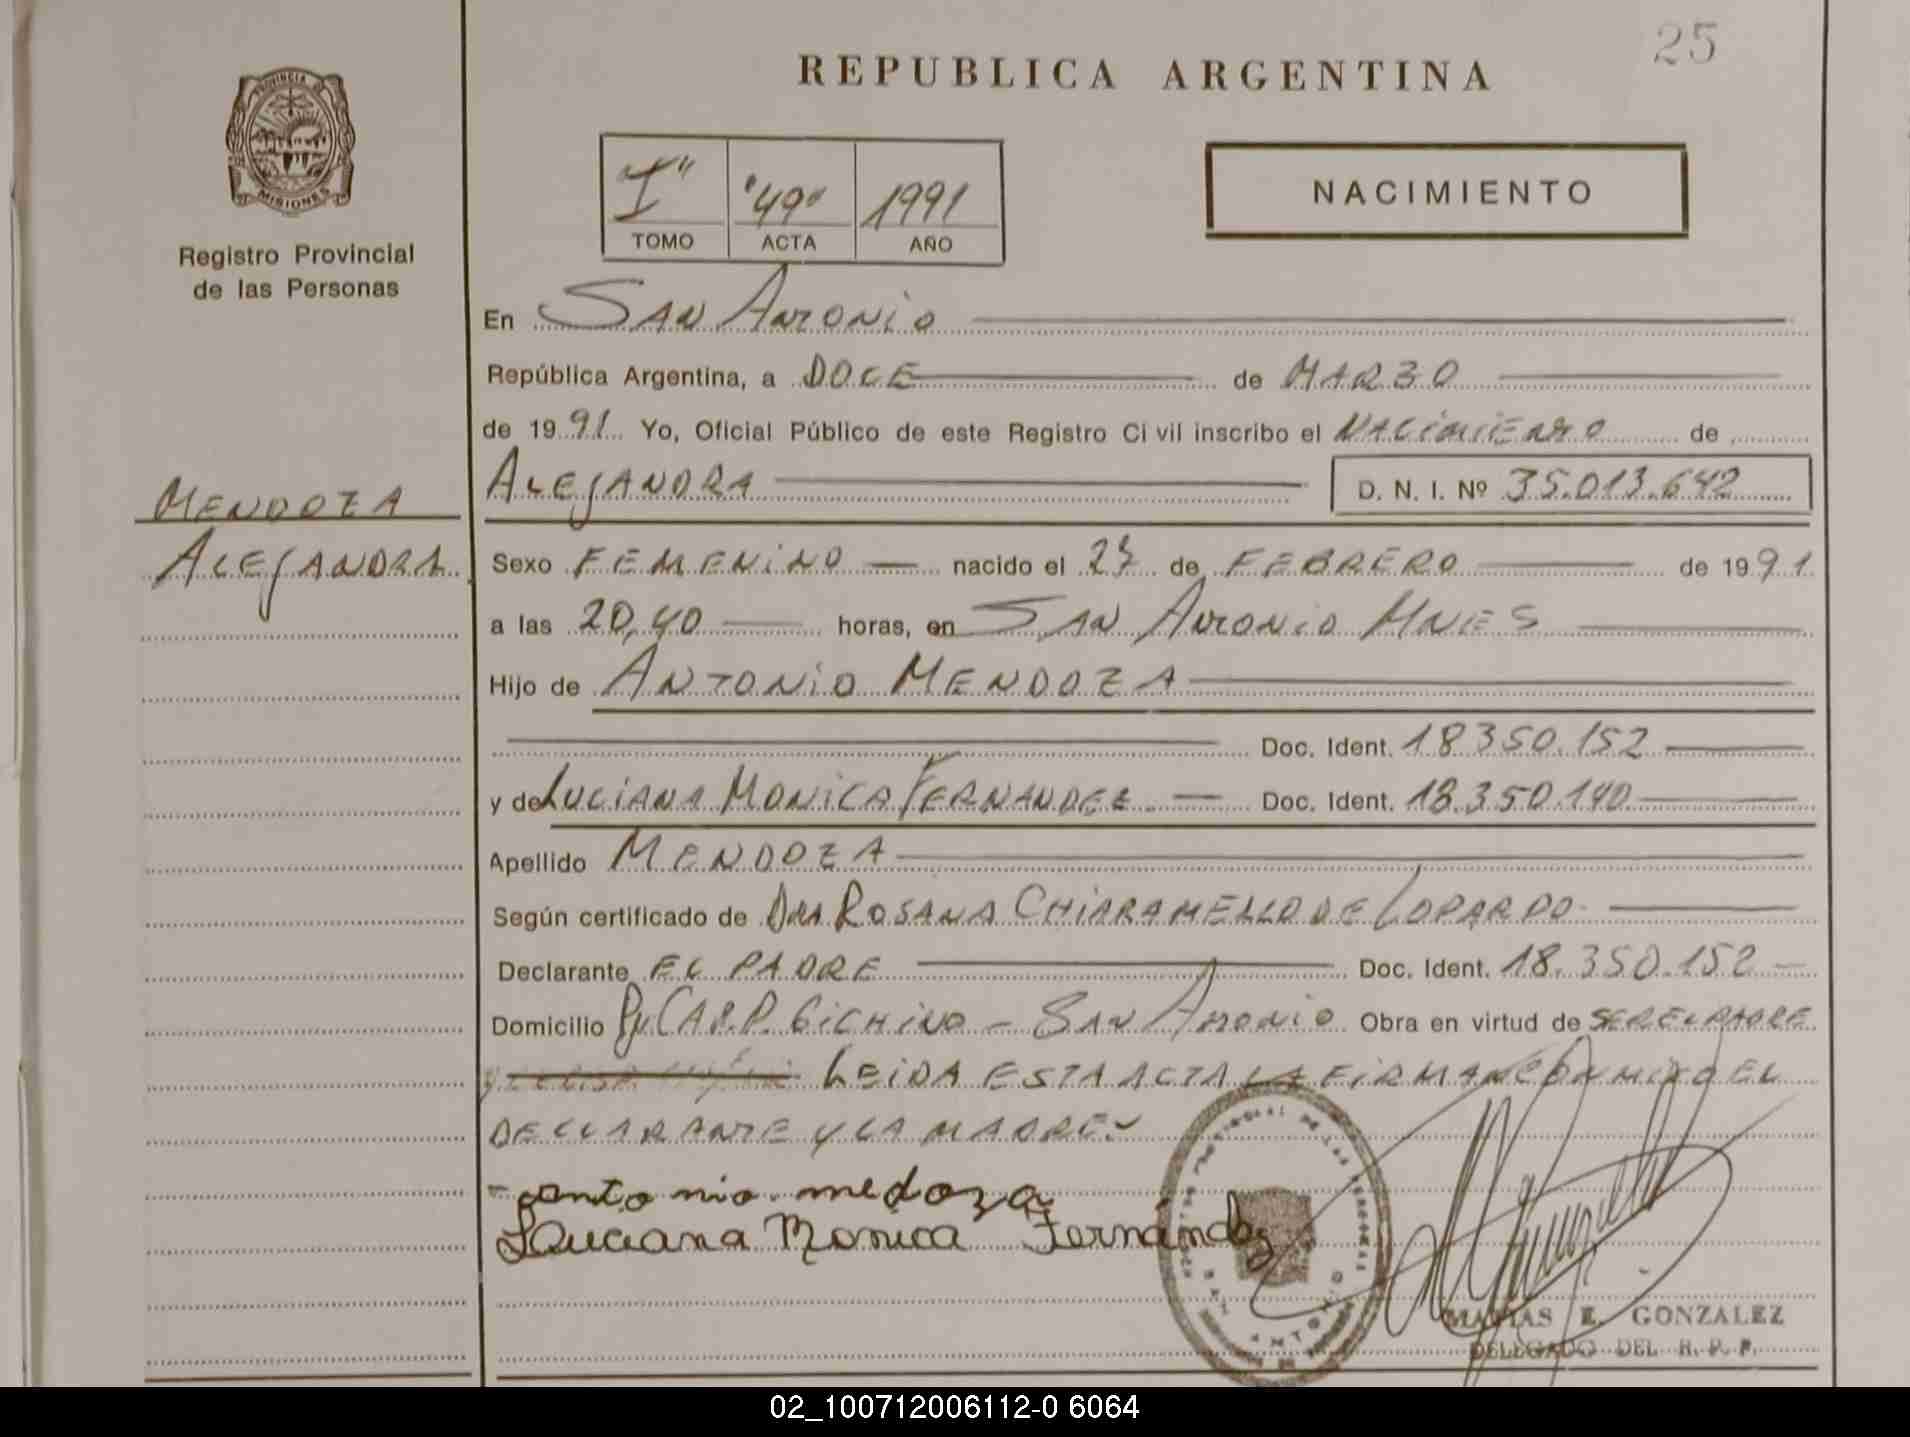 25
REPUBLICA ARGENTINA
PROVINCIA DE
MISIONES
Registro Provincial
de las Personas
"I" "49" 1991
TOMO ACTA AÑO
NACIMIENTO
En SAN ANTONIO
República Argentina, a DOCE de MARZO
de 1991 Yo, Oficial Público de este Registro Civil inscribo el NACIMIENTO de
ALEJANDRA D. N. I. Nº 35.013.642
MENDOZA
ALEJANDRA
Sexo FEMENINO nacido el de FEBRERO de 1991
a las 20,40 horas, en SAN ANTONIO MNES
Hijo de ANTONIO MENDOZA
Doc. Ident. 18350.152
y de LUCIANA MONICA FERNANDEZ Doc. Ident. 18.350.140
Apellido MENDOZA
Según certificado de DRA ROSANA CHIARAMELLO DE LOPARDO
Declarante EL PADRE Doc. Ident. 18.350.152
Domicilio SAN ANTONIO Obra en virtud de SER EL PADRE
LEIDA ESTA ACTA LA FIRMAN CONMIGO EL
DECLARANTE Y LA MADRE
antonio medoza
Luciana Monica Fernández
SAN ANTONIO
MATIAS E. GONZALEZ
DELEGADO DEL R. P. P.
02_100712006112-0 6064